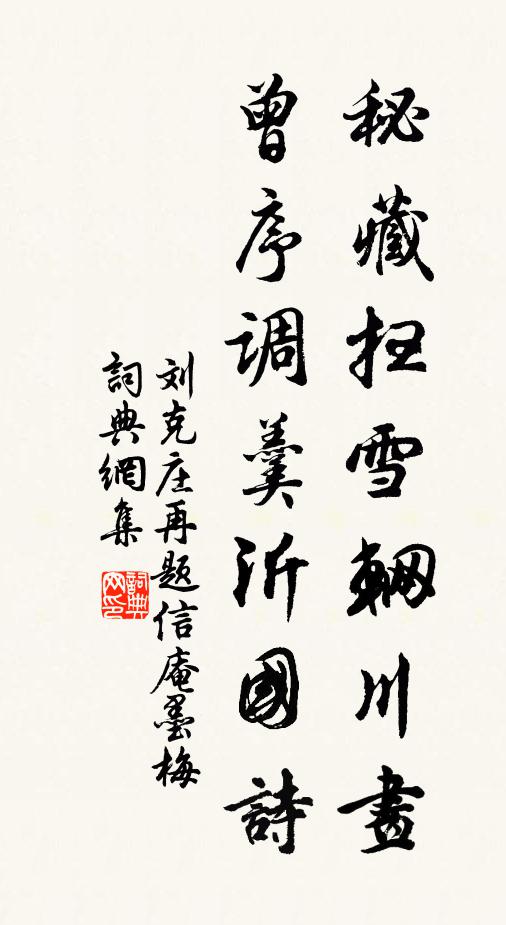 秘藏抂雪輞川畫
曾序调羹沂國詩
刘克庄再题信庵墨梅
詞典網集
詞典网印